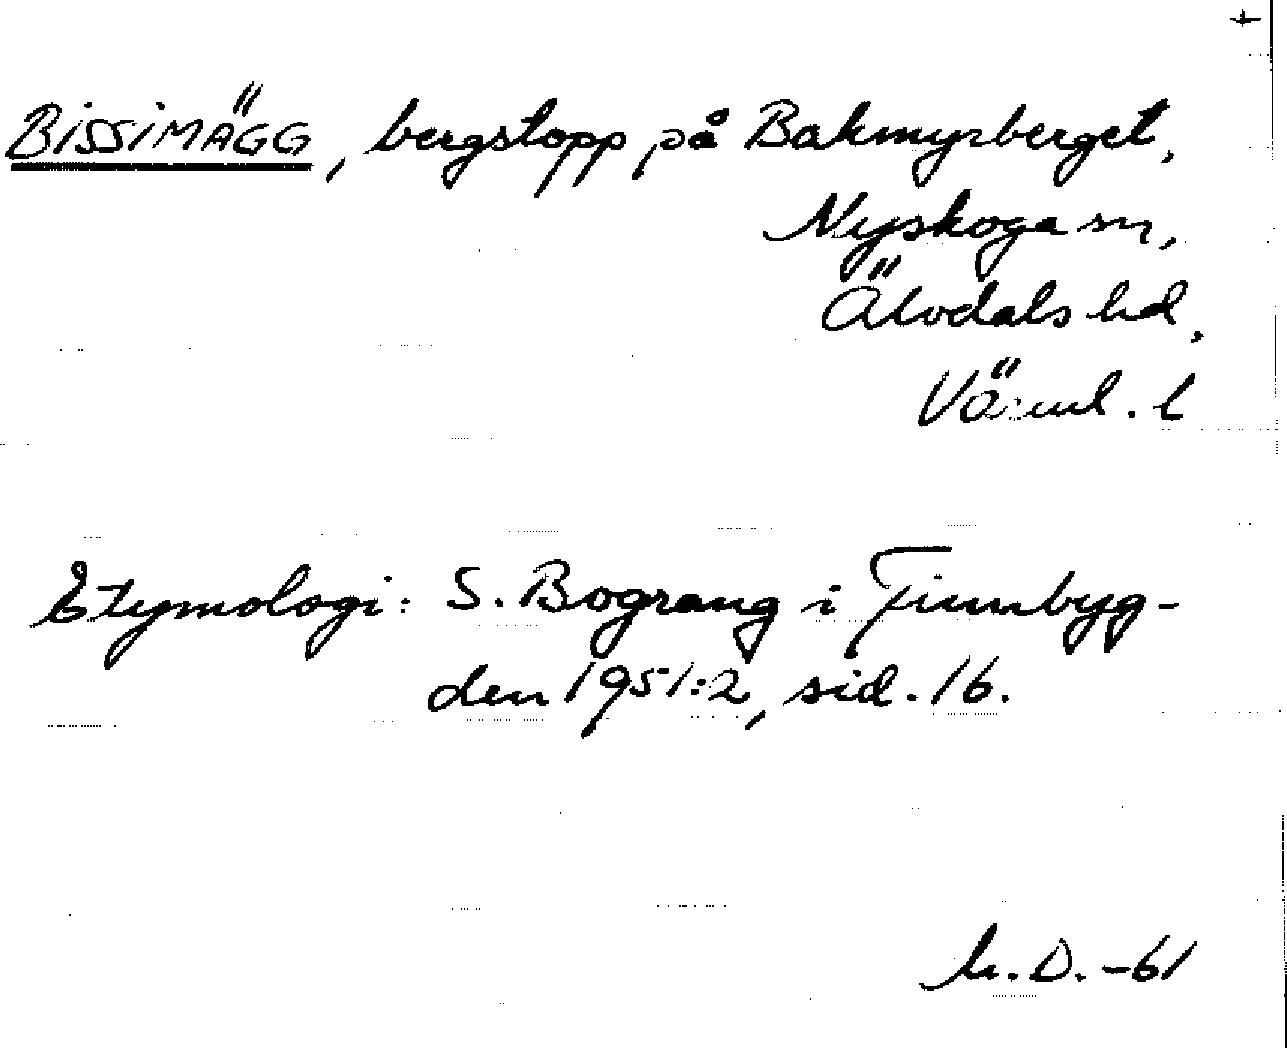 BISSIMÄGG, bergstopp på Bakmyrberget,
Nyskoga sn,
Älvdals hd,
Värml. l
Etymologi: S. Bograng i Finnbyg-
den 1951:2, sid. 16.
D. -61